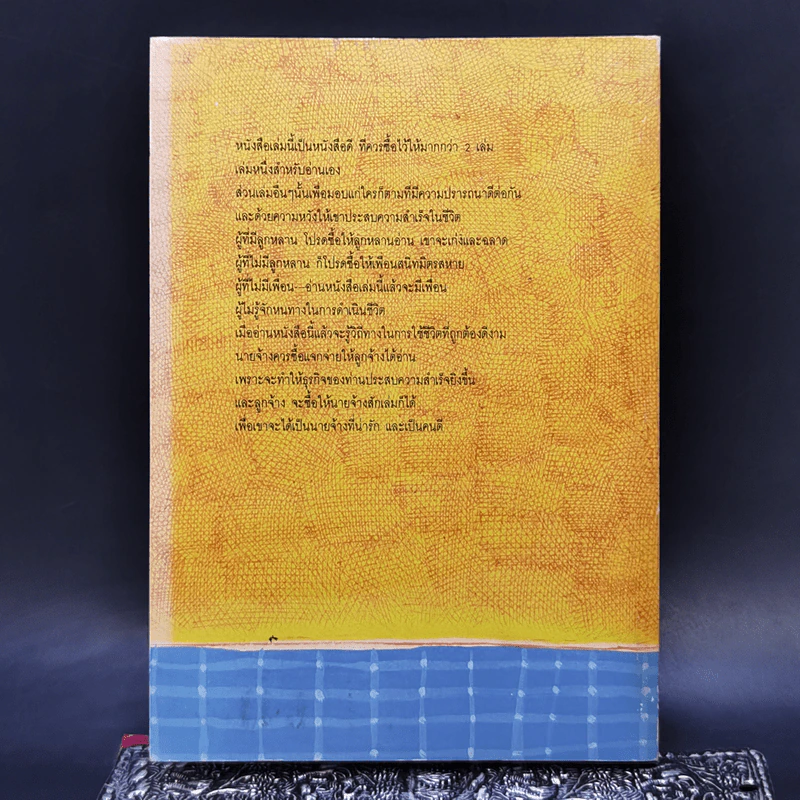 หนังสือเล่มนี้เป็นหนังสือดี ที่ควรซื้อไว้ให้มากกว่า 2 เล่ม
เล่มหนึ่งสำหรับอ่านเอง
ส่วนเล่มอื่นๆนั้นเพื่อมอบแก่ใครก็ตามที่มีความปรารถนาดีต่อกัน
และด้วยความหวังให้เขาประสบความสำเร็จในชีวิต
ผู้ที่มีลูกหลาน โปรดซื้อให้ลูกหลานอ่าน เขาจะเก่งและฉลาด
ผู้ที่ไม่มีลูกหลาน ก็โปรดซื้อให้เพื่อนสนิทมิตรสหาย
ผู้ที่ไม่มีเพื่อน—อ่านหนังสือเล่มนี้แล้วจะมีเพื่อน
ผู้ไม่รู้จักหนทางในการดำเนินชีวิต
เมื่ออ่านหนังสือนี้แล้วจะรู้วิถีทางในการใช้ชีวิตที่ถูกต้องดีงาม
นายจ้างควรซื้อแจกจ่ายให้ลูกจ้างได้อ่าน
เพราะจะทำให้ธุรกิจของท่านประสบความสำเร็จยิ่งขึ้น
และลูกจ้าง จะซื้อให้นายจ้างสักเล่มก็ได้
เพื่อเขาจะได้เป็นนายจ้างที่น่ารัก และเป็นคนดี